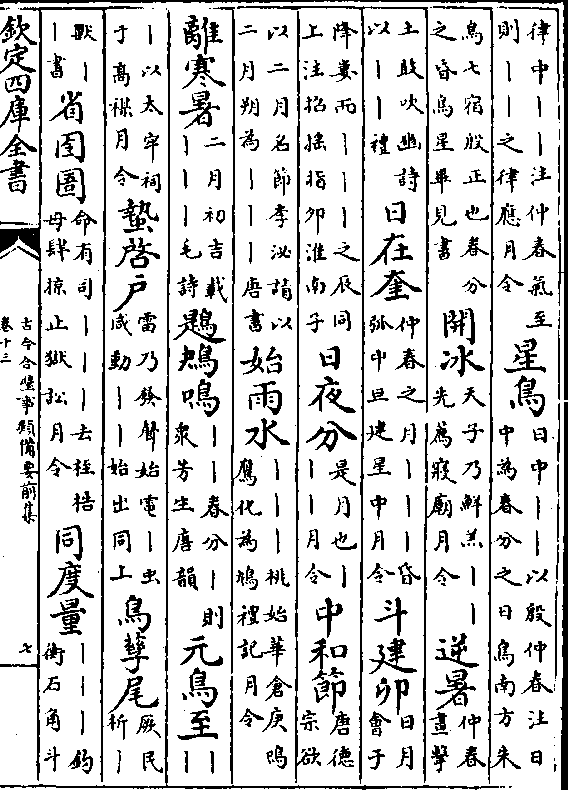 律中｜｜注仲春氣至
則｜｜之律應月令
星鳥
日中｜｜以殷仲春注日
中為春分之日鳥南方朱
鳥七宿殷正也春分
之昏鳥星畢見書
開冰
天子乃鮮羔｜｜
先薦寢廟月令
逆暑
仲春
晝擊
土鼓吹豳詩
以｜｜禮
日在奎
仲春之月｜｜｜昏
弧中旦建星中月令
斗建卯
日月
會于
降婁而｜｜｜之辰同
上注招搖指卯淮南子
日夜分
是月也｜
｜｜月令
中和節
唐德
宗欲
以二月名節李泌請以
二月朔為｜｜｜唐書
始雨水
｜｜｜桃始華倉庚鳴
鷹化為鳩禮記月令
離寒暑
二月初吉載
｜｜｜毛詩
鶗鴂鳴
｜｜春分｜則
衆芳生唐韻
元鳥至
｜
｜
｜以太牢祠
于高禖月令
蟄啓戶
雷乃發聲始電｜虫
咸動｜｜始出同上
鳥孳尾
厥民
析｜
獸｜
｜書
省囹圄
命有司｜｜｜去桎梏
毋肆掠止獄訟月令
同度量
｜｜｜鈞
衡石角斗
欽定四庫全書
古今合璧事類備要前集
卷十三
七